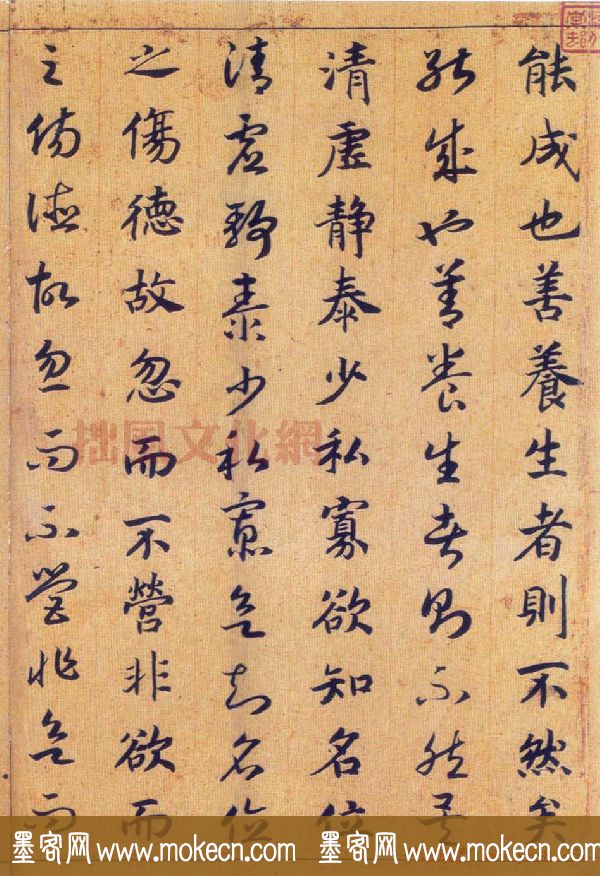 能成也善養生者則不然矣
能成也善養生者則不然矣
清虛靜泰少私寡欲知名位
清虛靜泰少私寡欲知名位
之傷德故忽而不營非欲而
之傷德故忽而不營非欲而
拙圃文化網
墨客网 www.mokecn.com 墨客网 www.mokecn.com